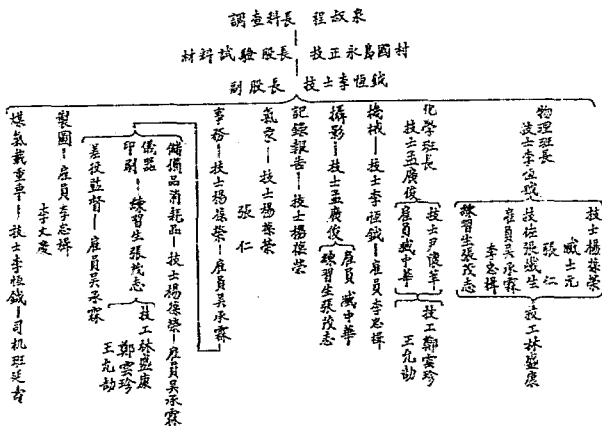 調查科長 程叔泉
材料試驗股長 技正永島國村
副股長 技士李恒鉞
物理班長 技士李恒鉞
技士楊葆榮
臧士元
張仁
技佐張熾生
雇員吳承霖
李忠楫
練習生張茂志
技工林盛康
化学班長 技士孟廣俊
技士尹陵華
雇員臧中華
技工鄭雲珍
王允劼
機械 技士李恒鉞 雇員李忠楫
攝影 技士孟廣俊
雇員臧中華
練習生張茂志
記錄報告 技士楊葆榮
氣象 技士楊葆榮
張仁
事務 技士楊葆榮 雇員吳承霖
儲備品消耗品 技士楊葆榮 雇員吳承霖
儀器
印刷
練習生張茂志
技工林盛康
鄭雲珍
王允劼
差役監督 雇員吳承霖
製圖 雇員李忠楫
煤氣載重車 技士李恒鉞 司机班延壽